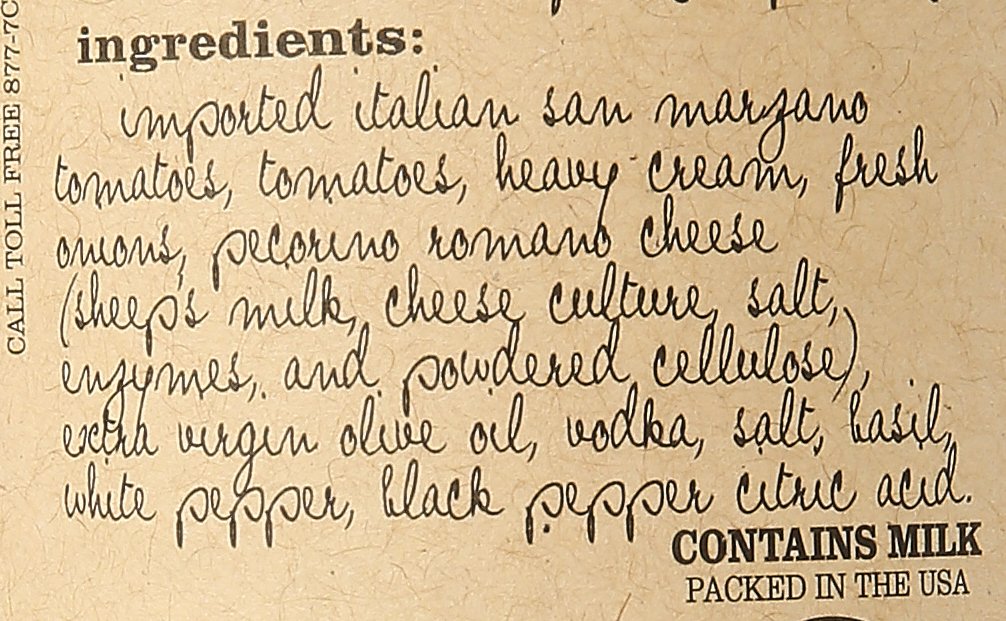 ingredients:
imported italian san marzano
tomatoes, tomatoes, heavy cream, fresh
onions, pecorino romano cheese
(sheep's milk, cheese culture, salt,
enzymes, and powdered cellulose),
extra virgin olive oil, vodka, salt, basil,
white pepper, black pepper citric acid.
CONTAINS MILK
PACKED IN THE USA
CALL TOLL FREE 877-7C